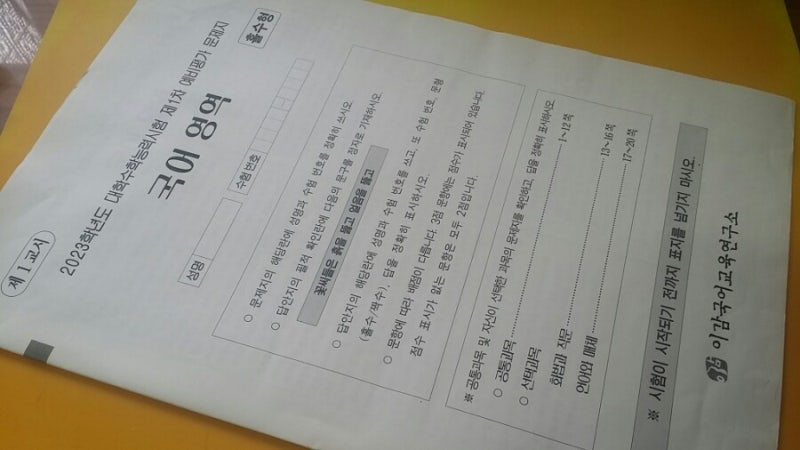 제 1 교시
2023학년도 대학수학능력시험 제1차 예비평가 문제지
국어 영역
홀수형
성명
수험 번호
○ 문제지의 해당란에 성명과 수험 번호를 정확히 쓰시오.
○ 답안지의 필적 확인란에 다음의 문구를 정자로 기재하시오.
꽃씨들은 흙을 뚫고 얼음을 뚫고
○ 답안지의 해당란에 성명과 수험 번호를 쓰고, 또 수험 번호, 문형
(홀수/짝수), 답을 정확히 표시하시오.
○ 문항에 따라 배점이 다릅니다. 3점 문항에는 점수가 표시되어 있습니다.
점수 표시가 없는 문항은 모두 2점입니다.
※ 공통과목 및 자신이 선택한 과목의 문제지를 확인하고, 답을 정확히 표시하시오.
○ 공통과목 1~12 쪽
○ 선택과목
화법과 작문 13~16 쪽
언어와 매체 17~20 쪽
※ 시험이 시작되기 전까지 표지를 넘기지 마시오.
이감국어교육연구소